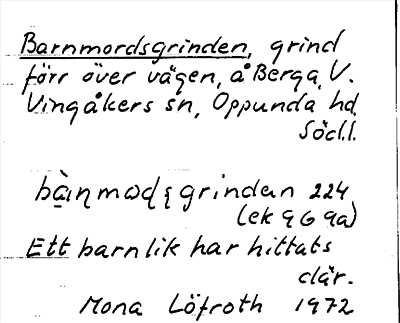 Barnmordsgrinden, grind
förr över vägen, å Berga, V.
Vingåkers sn, Oppunda hd.
Södl.
bà̤ɳmωɖȿgrindan 224
Ett barnlik har hittats
där.
Mona Löfroth 1972